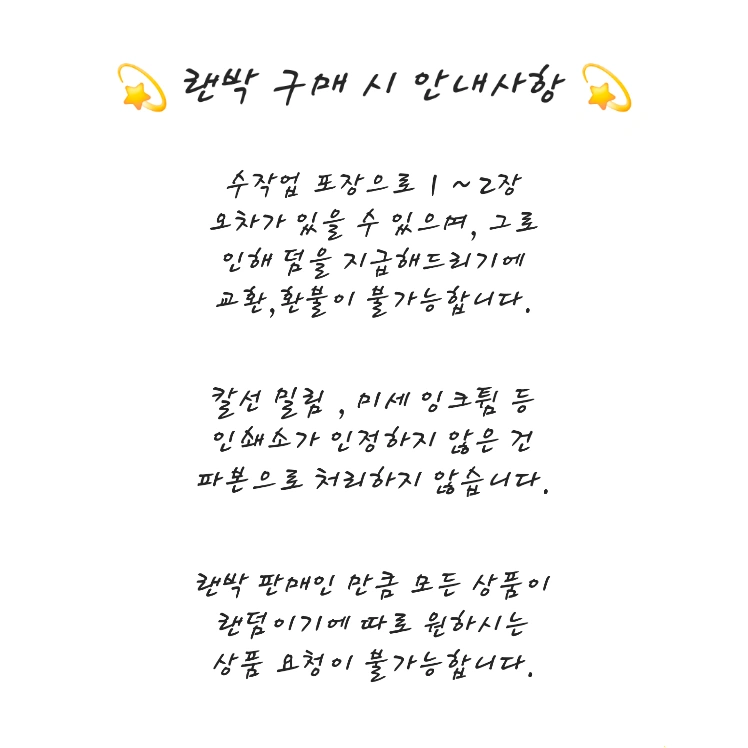 💫 랜박 구매 시 안내사항 💫
수작업 포장으로 1 ~ 2장
오차가 있을 수 있으며, 그로
인해 덤을 지급해드리기에
교환,환불이 불가능합니다.
칼선 밀림 , 미세 잉크튐 등
인쇄소가 인정하지 않은 건
파본으로 처리하지 않습니다.
랜박 판매인 만큼 모든 상품이
랜덤이기에 따로 원하시는
상품 요청이 불가능합니다.